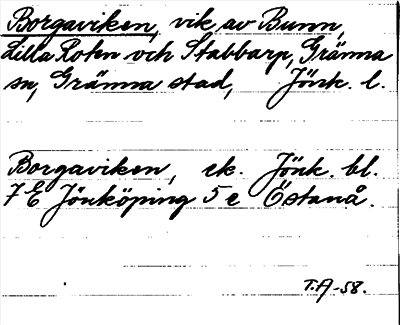 Borgaviken, vik av Bunn,
Lilla Roten och Stabbarp, Gränna
sn, Gränna stad, Jönk. l.
Borgaviken, ek. Jönk. bl.
7 E Jönköping 5 e Östanå.
T.A-58.